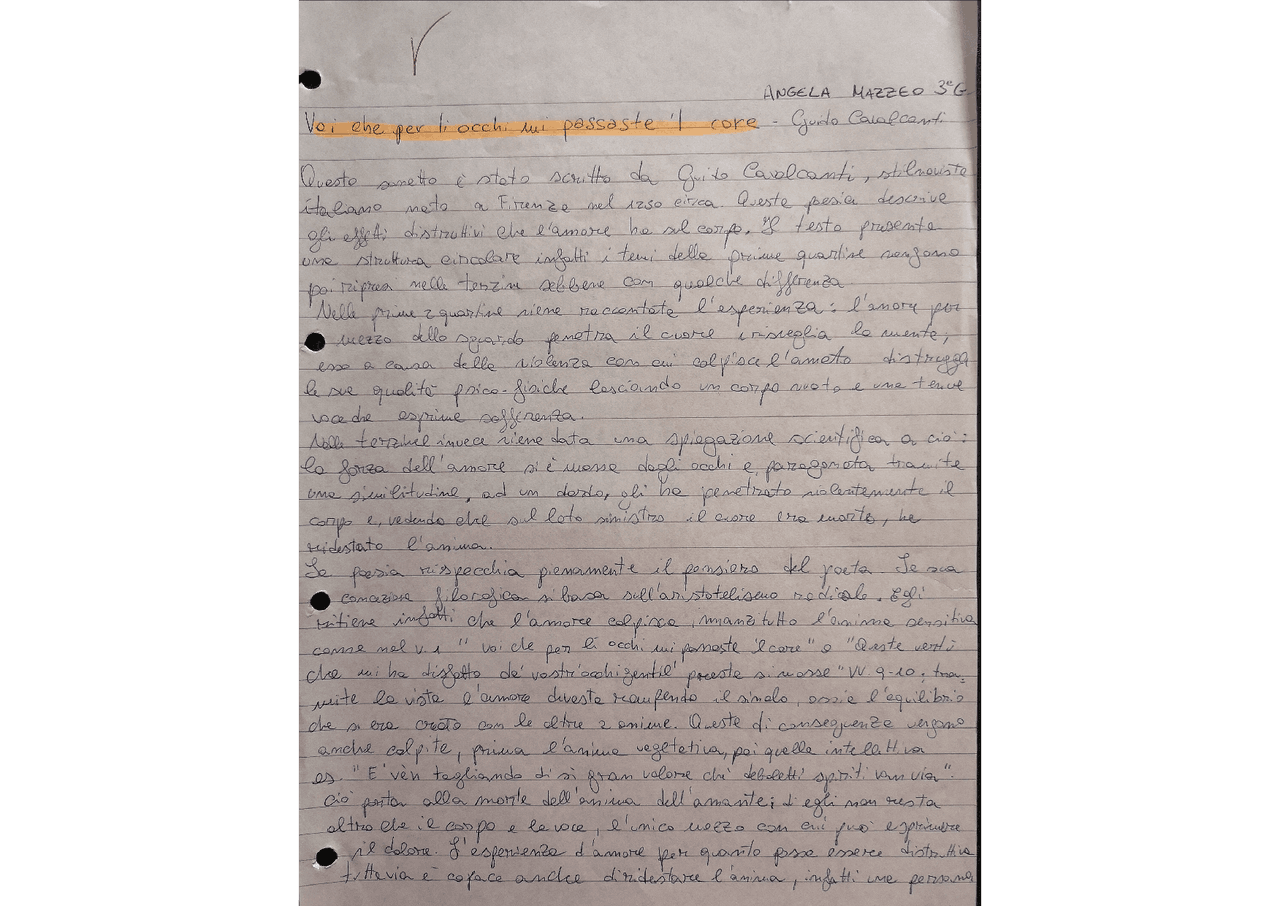 ANGELA MAZZEO 3°G
Voi che per li occhi mi passaste 'l core - Guido Cavalcanti
Questo sonetto è stato scritto da Guido Cavalcanti, stilnovista
italiano nato a Firenze nel 1250 circa. Questa poesia descrive
gli effetti distruttivi che l'amore ha sul corpo. Il testo presenta
una struttura circolare infatti i temi delle prime quartine vengono
poi ripresi nelle terzine sebbene con qualche differenza.
Nelle prime 2 quartine viene raccontata l'esperienza: l'amore per
mezzo dello sguardo penetra il cuore e risveglia la mente,
esso a causa della violenza con cui colpisce l'amato distrugge
le sue qualità psico-fisiche lasciando un corpo vuoto e una tenue
voce che esprime sofferenza.
Nelle terzine invece viene data una spiegazione scientifica a ciò:
la forza dell'amore si è mossa dagli occhi e, paragonata tramite
una similitudine, ad un dardo, gli ha penetrato violentemente il
corpo e, vedendo che sul lato sinistro il cuore era morto, ha
ridestato l'anima.
La poesia rispecchia pienamente il pensiero del poeta. La sua
concezione filosofica si basa sull'aristotelismo radicale. Egli
ritiene infatti che l'amore colpisca, innanzitutto l'anima sensitiva
come nel v.1 "voi che per li occhi mi passaste 'l core" o "Questa vertù
che mi ha disfatto de' vostr'occhi gentil' presta si mosse" VV 9-10; tra-
mite la vista l'amore diventa rompendo il sinolo, ossia l'equilibrio
che si era creato con le altre 2 anime. Queste di conseguenza vengono
anche colpite, prima l'anima vegetativa, poi quella intellettiva
es. "E' vèn tagliando di sì gran valore ch'i deboletti spiriti van via".
Ciò porta alla morte dell'anima dell'amante; d'egli non resta
altro che il corpo e la voce, l'unico mezzo con cui può esprimere
il dolore. L'esperienza d'amore per quanto possa essere distruttiva
tuttavia è capace anche di ridestare l'anima, infatti una persona